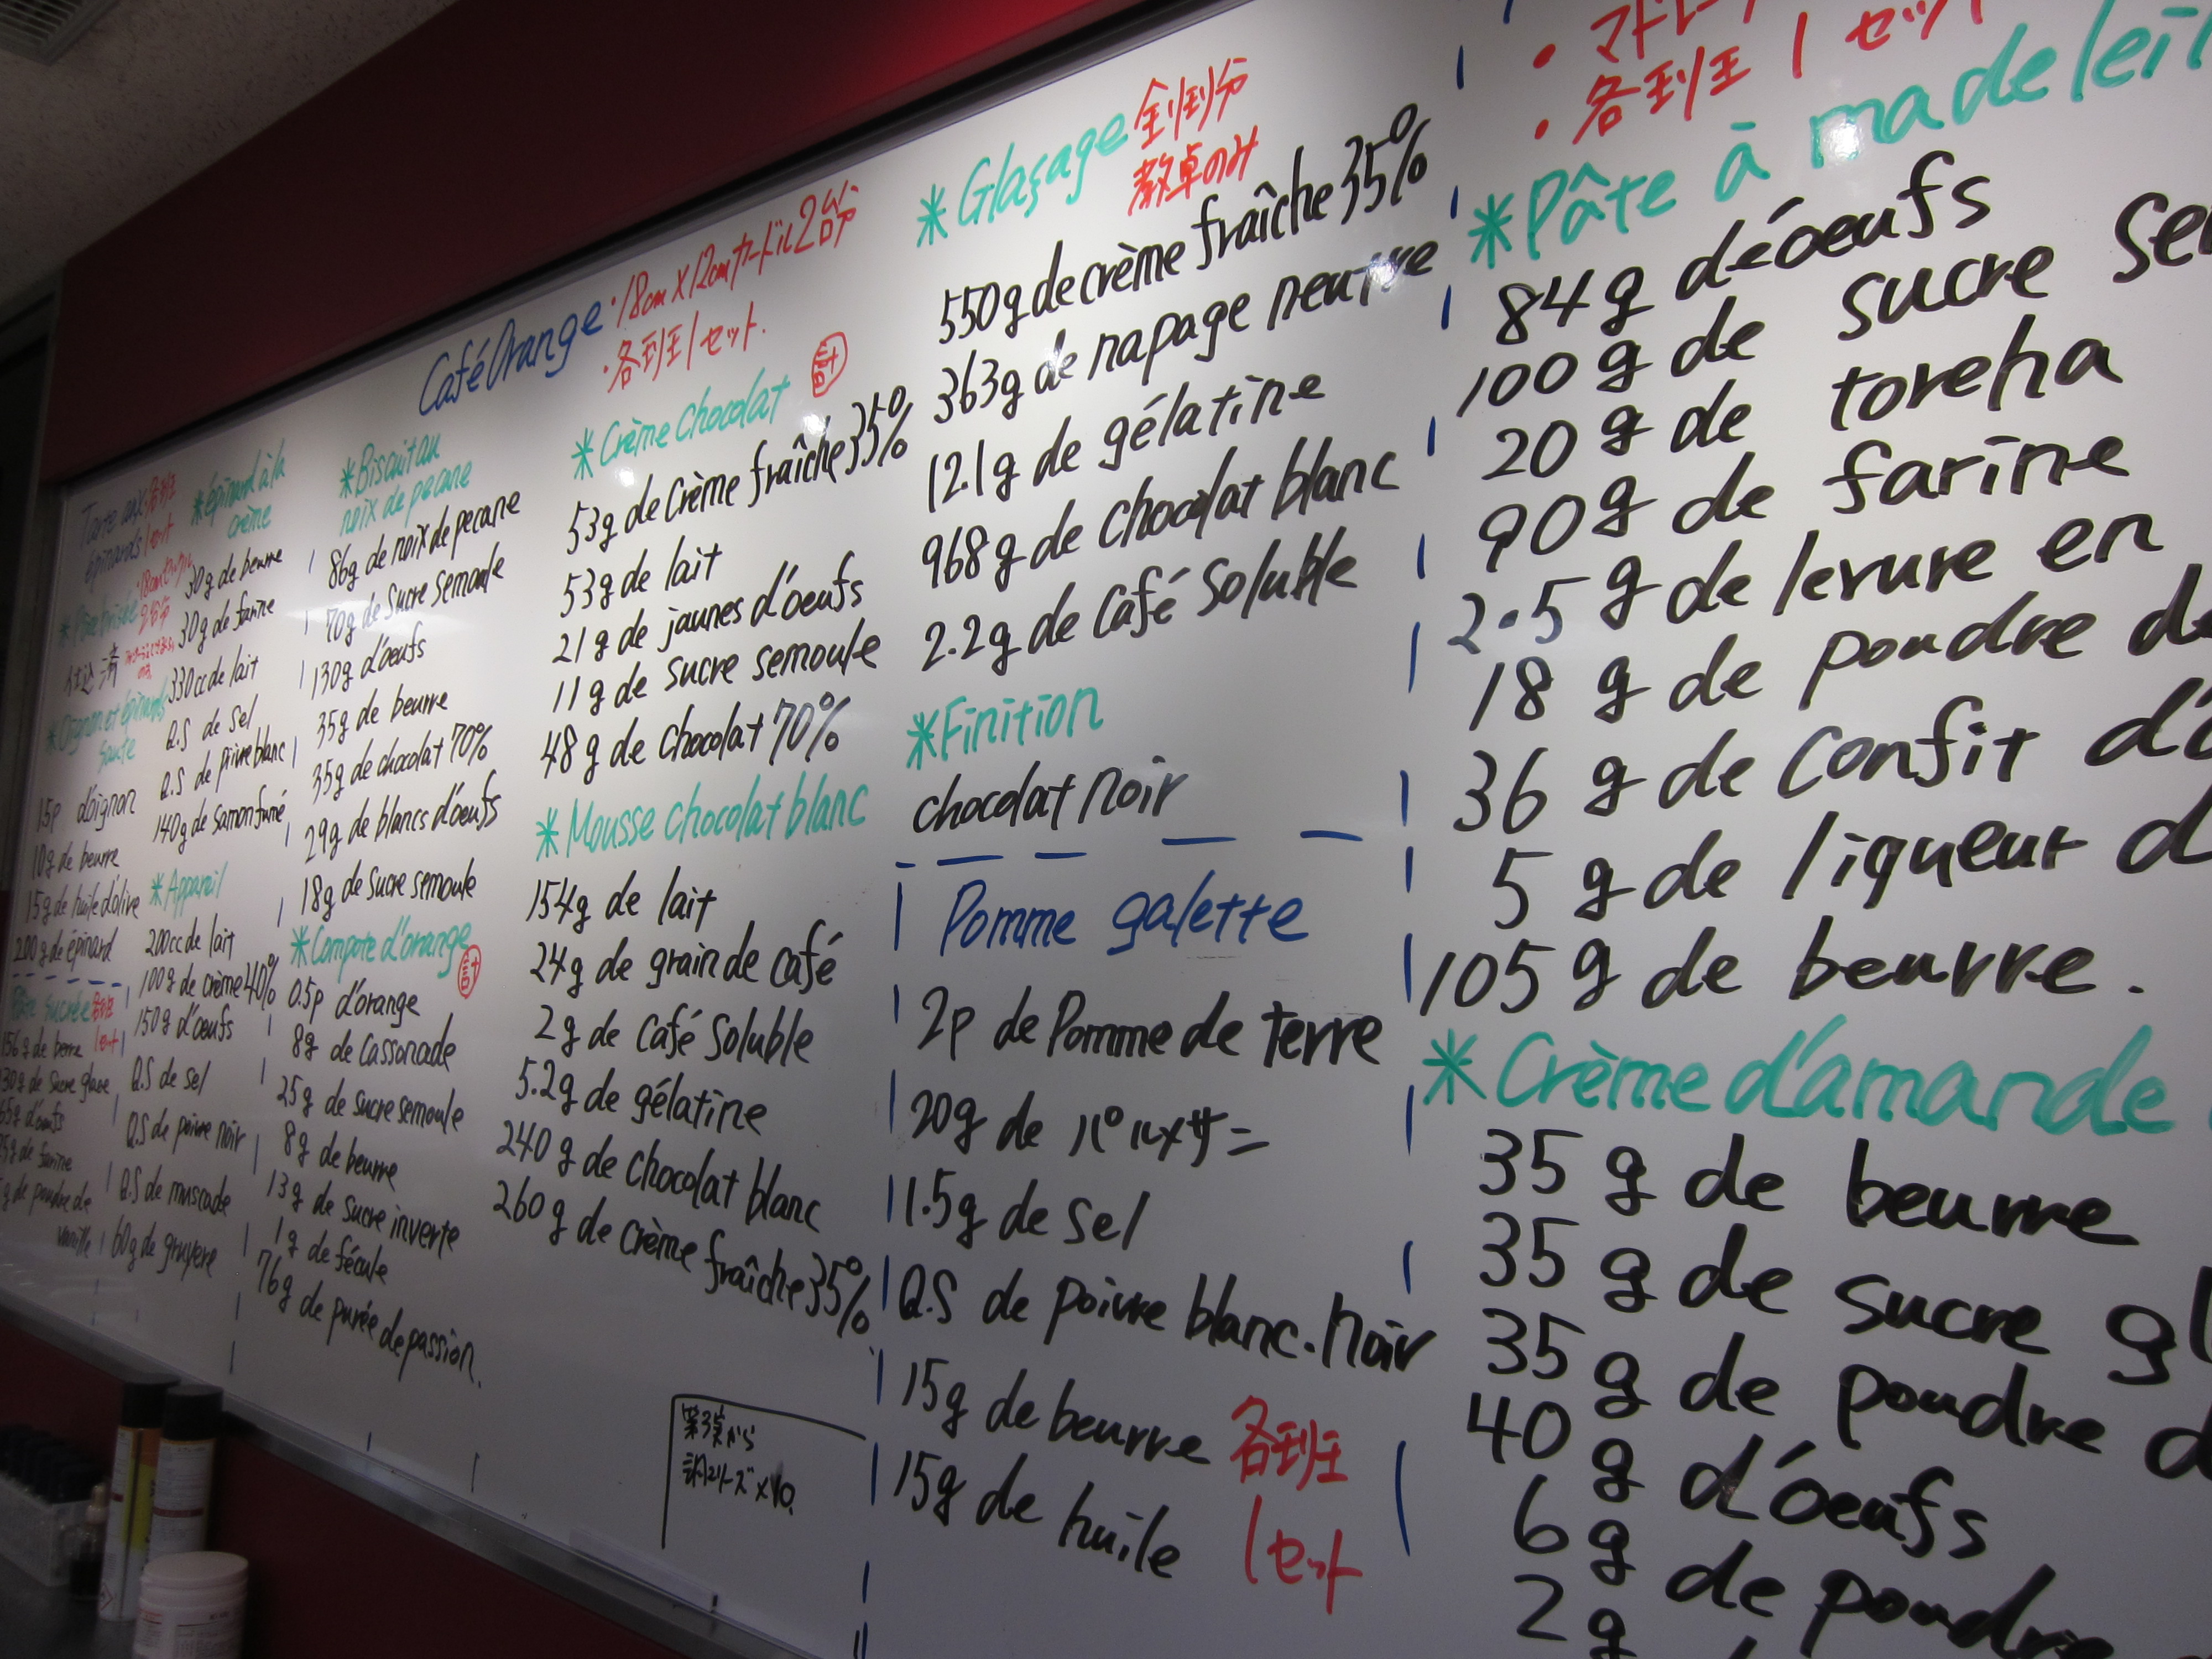 Tarte aux 各班
épinards 1セット
*Pâte brisée
仕込済
*Oignon et épinards
Sauté
15p d'oignon
10g de beurre
15g de huile d'olive
200g de épinard
Pâte Sucrée 各班
1セット
g de Sucre glace
d'œufs
g de farine
g de poudre de
vanille
*épinard à la
crème
30g de beurre
30g de farine
330cc de lait
Q.S de sel
Q.S de poivre blanc
140g de samon fumé
*Appareil
200cc de lait
100g de crème 40%
150g d'œufs
Q.S de sel
Q.S de poivre noir
Q.S de muscade
60g de gruyere
Café Orange
・18cm×12cmカードル2台分
・各班1セット.
*Biscuit au
noix de pecane
86g de noix de pecane
70g de sucre semoule
130g d'œufs
35g de beurre
35g de chocolat 70%
29g de blancs d'œufs
18g de sucre semoule
*Compote d'orange
計
0.5p d'orange
8g de cassonade
25g de sucre semoule
8g de beurre
13g de sucre inverte
1g de fécule
76g de purée de passion.
*Crème chocolat
計
53g de crème fraîche 35%
53g de lait
21g de jaunes d'œufs
11g de sucre semoule
48g de chocolat 70%
*Mousse chocolat blanc
154g de lait
24g de grain de café
2g de café soluble
5.2g de gélatine
240g de chocolat blanc
260g de crème fraîche 35%
から
×10.
*Glaçage 全班分
教卓のみ
550g de crème fraîche 35%
363g de napage neutre
12.1g de gélatine
968g de chocolat blanc
2.2g de café soluble
*Finition
chocolat noir
Pomme galette
2p de Pomme de terre
20g de パルメザン
1.5g de sel
Q.S de poivre blanc.noir
15g de beurre 各班
15g de huile 1セット
・マドレー
・各班1セット
*Pâte à madelei
84g déoeufs
100g de sucre se
20g de toreha
90g de farine
2.5g de levure en
18g de poudre d
36g de confit d'o
5g de liqueur d
105g de beurre.
*Crème d'amande
35g de beurre
35g de sucre gl
35g de poudre d
40g d'œufs
6g de poudre
2g